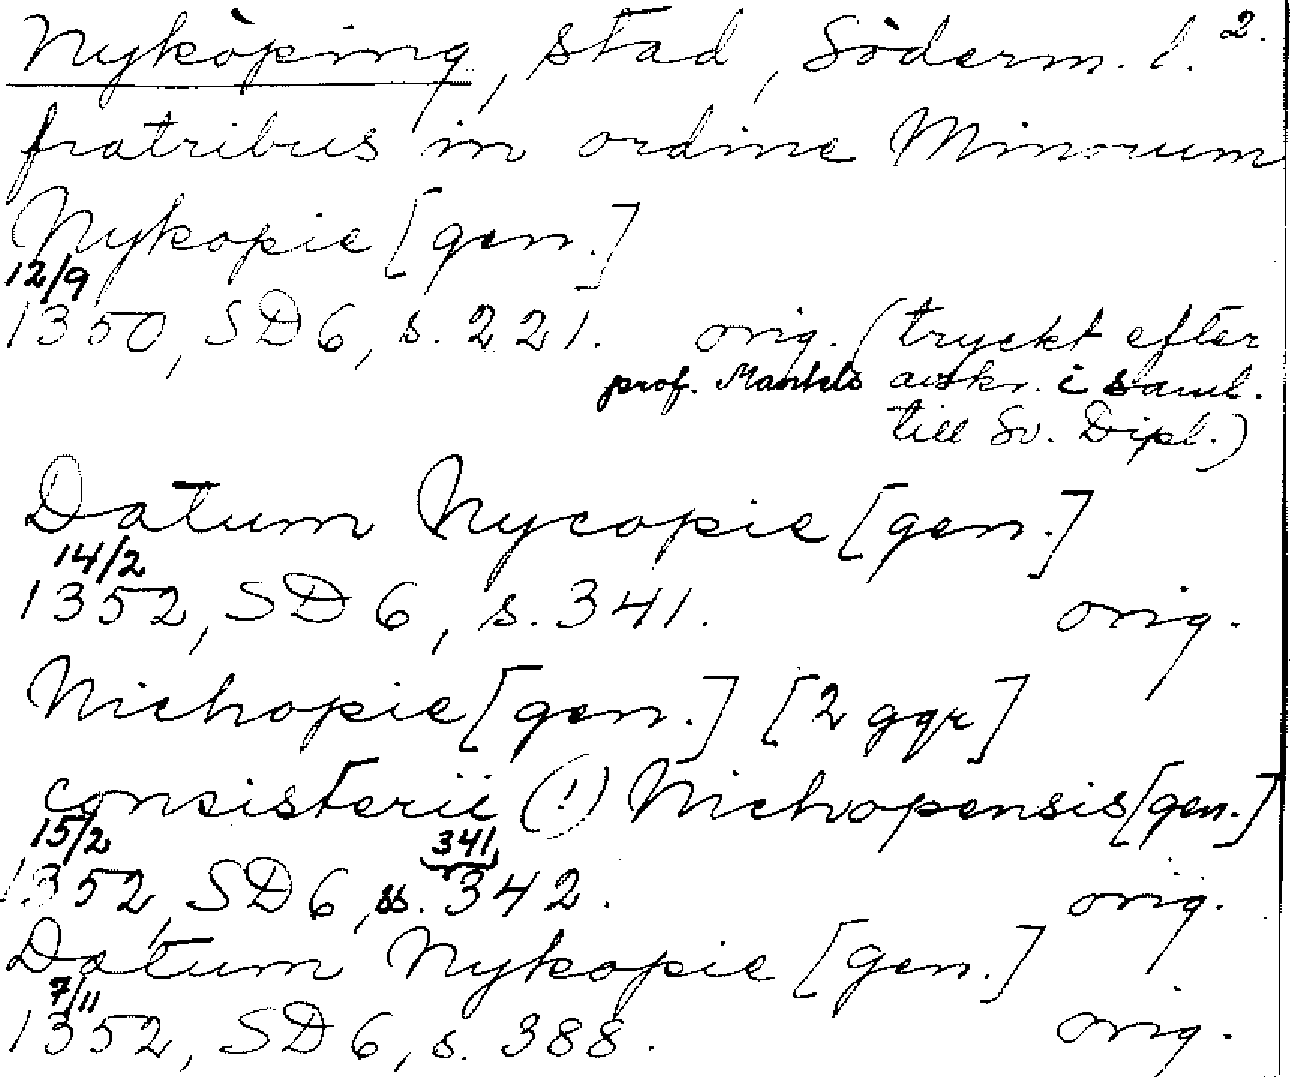 Nyköping, stad, Söderm. l. 2.
fratribus in ordine Minorum
Nykopie [gen.]
12/9
1350, SD 6, s. 221. orig. (tryckt efter
prof. Mantels avskr. i saml.
till Sv. Dipl.)
Datum Nycopie [gen.]
14/2
1352, SD 6, s. 341. orig.
Nichopie [gen.] [2 ggr]
consisterii (!) Nichopensis [gen.]
15/2 341
1352, SD 6, ss. 342. orig.
Datum Nykopie [gen.]
7/11
1352, SD 6, s. 388. orig.